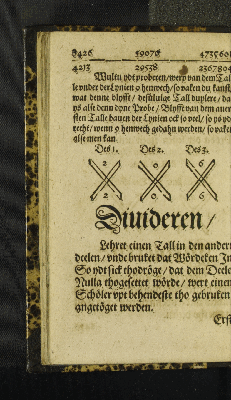 8426 59076 4735601
4213 29538 2367804
Wultu ydt proberen/werp van dem Tal
le vnder der Lynien 9 henwech/so vaken du kanst
wat denne blyfft/
ys alse denn dyne Probe/ Blyfft van dem auer
sten Talle bauen der Lynien ock so veel/ so ys yd
recht/ wenn 9 henwech gedahn werden/ so vaken
alse men kan.
Des 1. Des 2. Des 3.
2 0 6
2 0 6
Diuideren/
Lehret einen Tall in den andern
deelen/ vnde bruket dat Wördeken In
So ydt sick thodröge/ dat dem Deele
Nulla thogesettet wörde/ wert einem
Schöler vpt behendeste tho gebruken
angetöget werden.
Erst